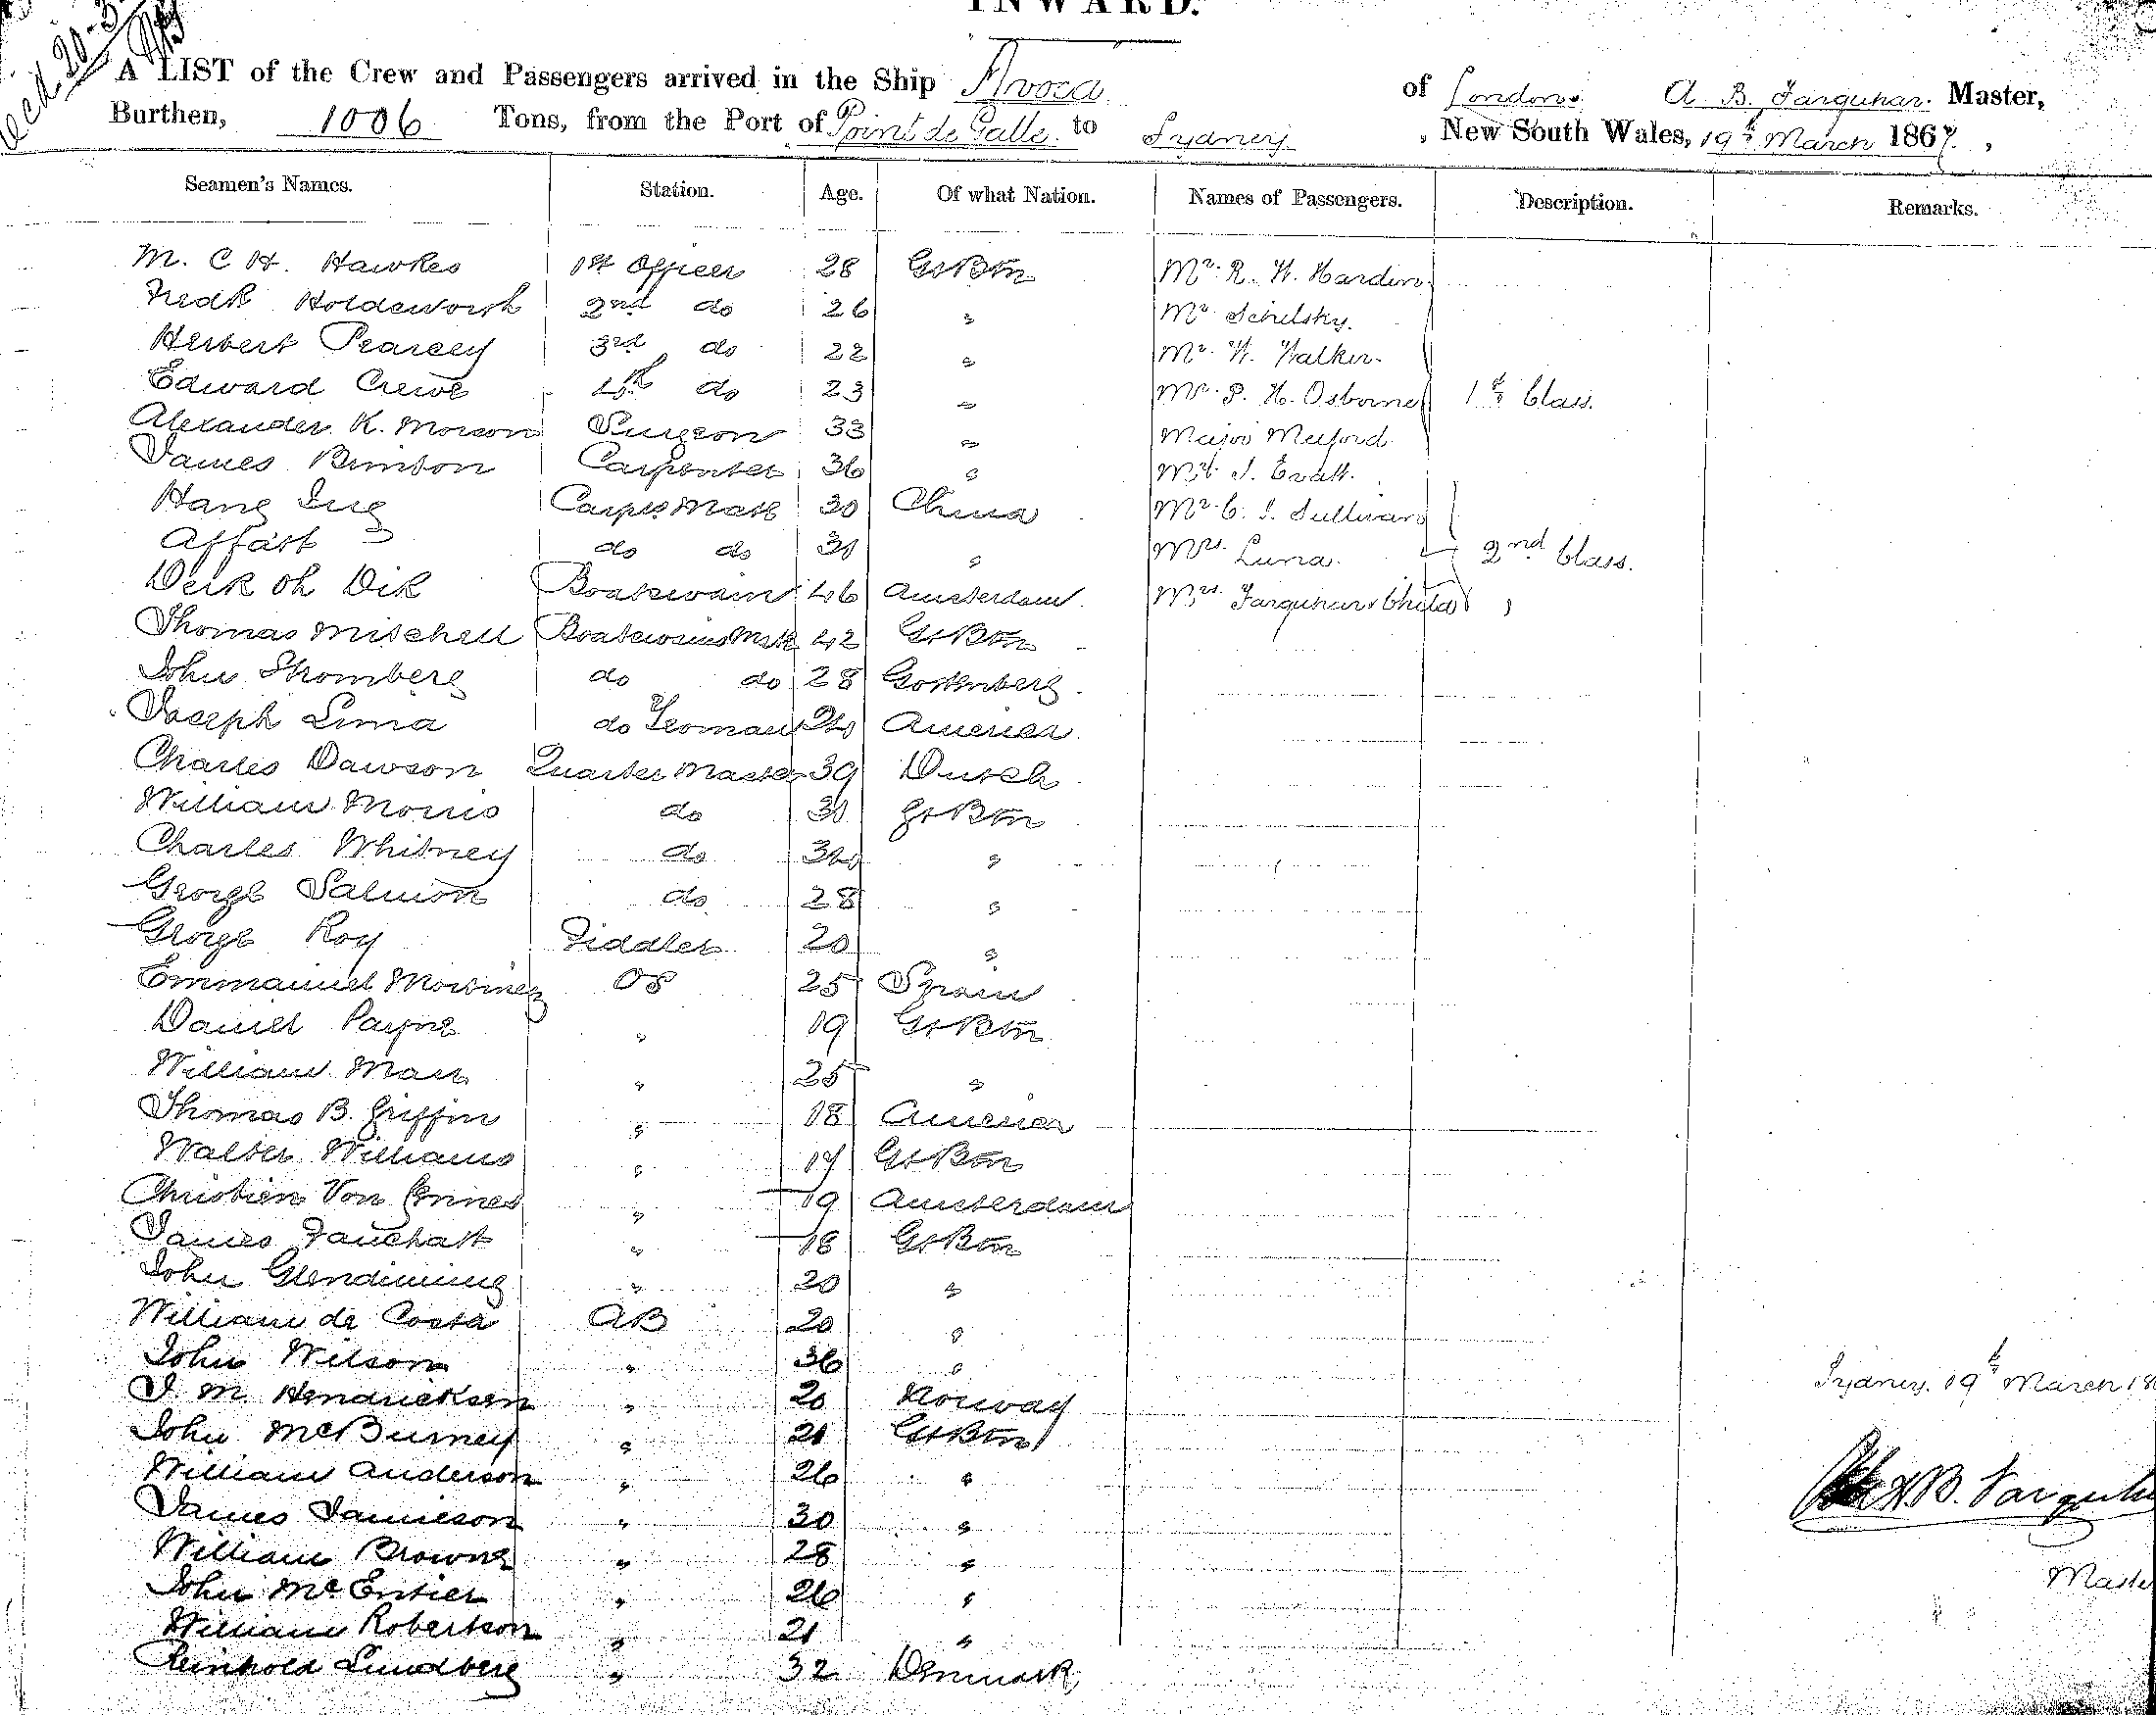 INWARD.
Recd. 20-3-
A LIST of the Crew and Passengers arrived in the Ship Avoca of London, A B. Farquhar. Master,
Burthen, 1006 Tons, from the Port of Point de Galle to Sydney, New South Wales, 19th March 1867.
Seamen's Names. Station. Age. Of what Nation. Names of Passengers. Description. Remarks.
M. C H. Hawkes 1st Officer 28 Gt Btn Mr. R. W. Hardin
Fredk Holdsworth 2nd do 26 " Mr Schilsky.
Herbert Pearcey 3rd do 22 " Mr. W. Walker.
Edward Crewe 4th do 23 " Mr. P. H. Osborne 1st Class.
Alexander K. Morson Surgeon 33 " Major Mulford.
James Brinton Carpenter 36 " Mr. J. Evatt.
Hang Carps Mate 30 China Mr. C. J. Sullivan
Affast do do 30 " Mrs. Luna. 2nd Class.
Deik Oh Dik Boatswain 46 Amsterdam. Mrs. Farquhar & Child
Thomas Mitchell Boatswains Mate 42 Gt Btn
John Stromberg do do 28 Gottenberg
Joseph Lima do Yeoman 24 America
Charles Dawson Quarter Master 39 Dutch
William Morris do 30 Gt Btn
Charles Whitney do 34 "
George Salmon do 28 "
George Roy Fiddler 20 "
Emmanuel OS 25 Spain
Daniel Payne " 19 Gt Btn
William " 25 "
Thomas B. Griffin " 18 America
Walter Williams " 17 Gt Btn
Christien Von " 19 Amsterdam
James " 18 Gt Btn
John Glendinning " 20 "
William da Costa AB 20 "
John Wilson " 36 "
J. M. Hendricksen " 20 Norway
John McBurney " 21 Gt Btn
William Anderson " 26 "
James Jamieson " 30 "
William Browne " 28 "
John McEntier " 26 "
William Robertson " 21 "
Reinhold Lundberg " 32 Denmark
Sydney. 19th March 18
A B. Farquha
Maste